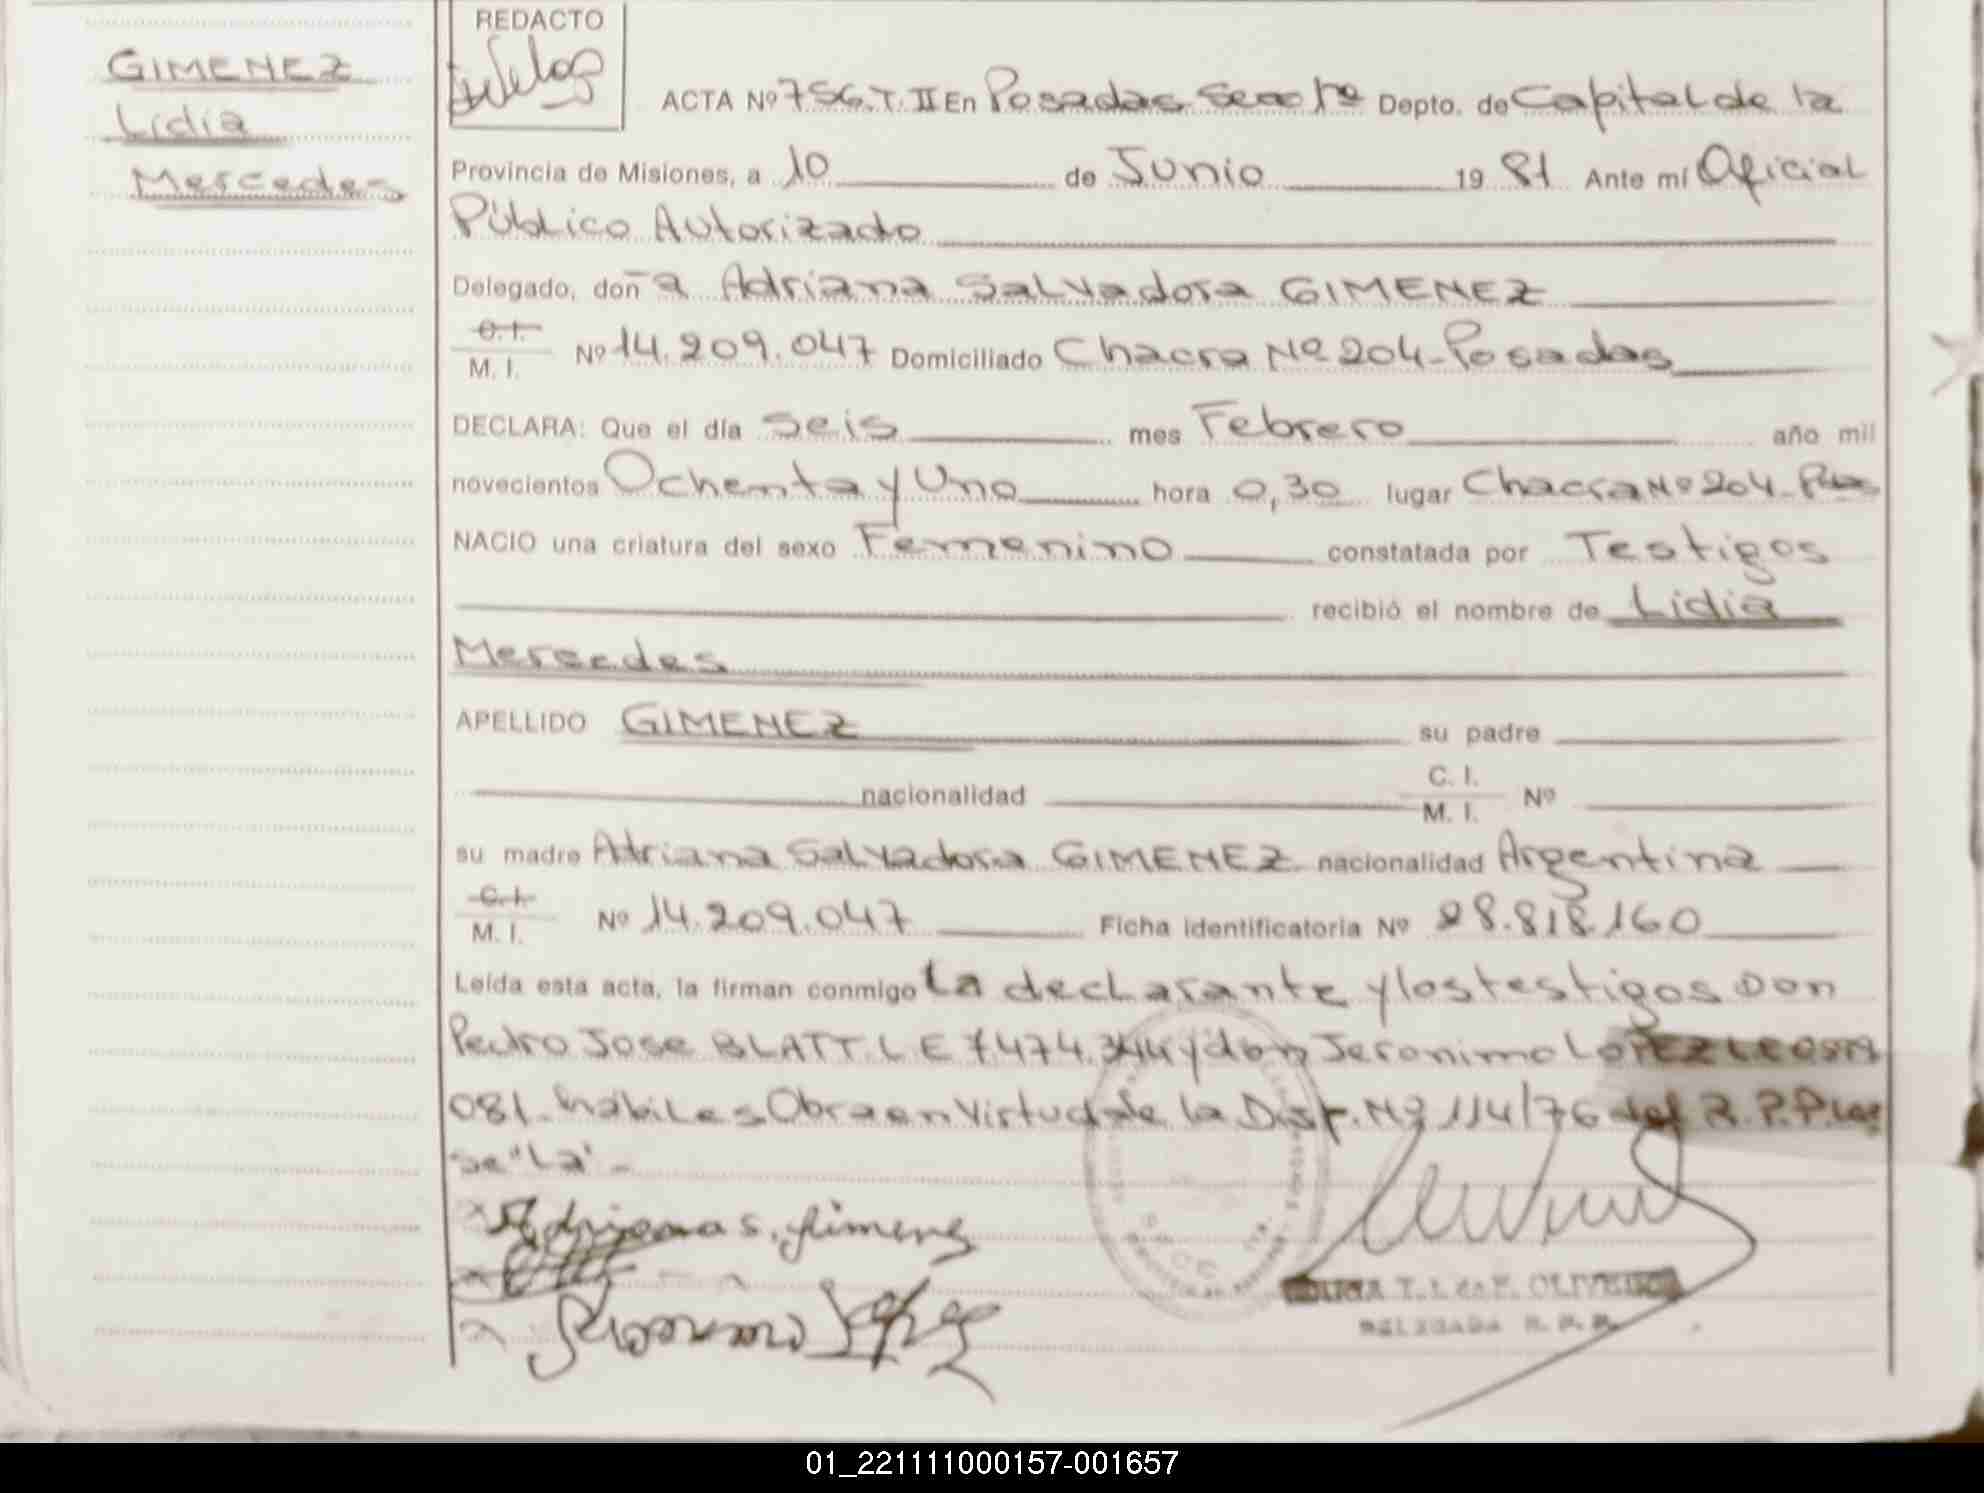 GIMENEZ
Lidia
Mercedes
REDACTO
ACTA Nº 756.T.II En Posadas Secc 1ª Depto. de Capital de la
Provincia de Misiones, a 10 de Junio 19 81 Ante mí Oficial
Público Autorizado
Delegado, doñ a Adriana Salvadora GIMENEZ
C. I.
M. I. Nº 14.209.047 Domiciliado Chacra Nº 204-Posadas
DECLARA: Que el día Seis mes Febrero año mil
novecientos Ochenta y Uno hora 0,30 lugar Chacra Nº 204-Pdas
NACIO una criatura del sexo Femenino constatada por Testigos
recibió el nombre de Lidia
Mercedes
APELLIDO GIMENEZ su padre
nacionalidad C. I. M. I. Nº
su madre Adriana Salvadora GIMENEZ nacionalidad Argentina
C. I.
M. I. Nº 14.209.047 Ficha identificatoria Nº 28.818.160
Leída esta acta, la firman conmigo La declarante y los testigos Don
Pedro Jose BLATT. L E 7.474.344 y don Jeronimo LOPEZ LE
081-habiles Obra en Virtud de la Disp. Nº 114/76 del R.P.P. Lea
se "La"-
Adriana S. Jimenez
Jeronimo López
T. L. de F. OLIVEIRA
DELEGADA R. P. P.
01_221111000157-001657